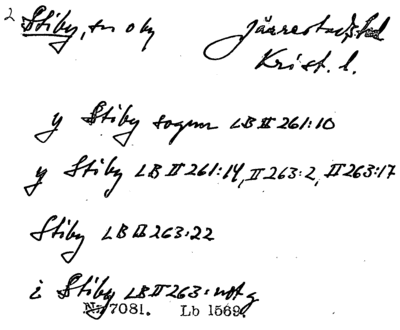 2 Stiby, sn o by Järrestads hd
Krist. l.
y Stiby sogum LB II 261:10
y Stiby LB II 261:14, II 263:2, II 263:17
Stiby LB II 263:22
i Stiby LB II 263: not g
Nr 7081. Lb 1569.